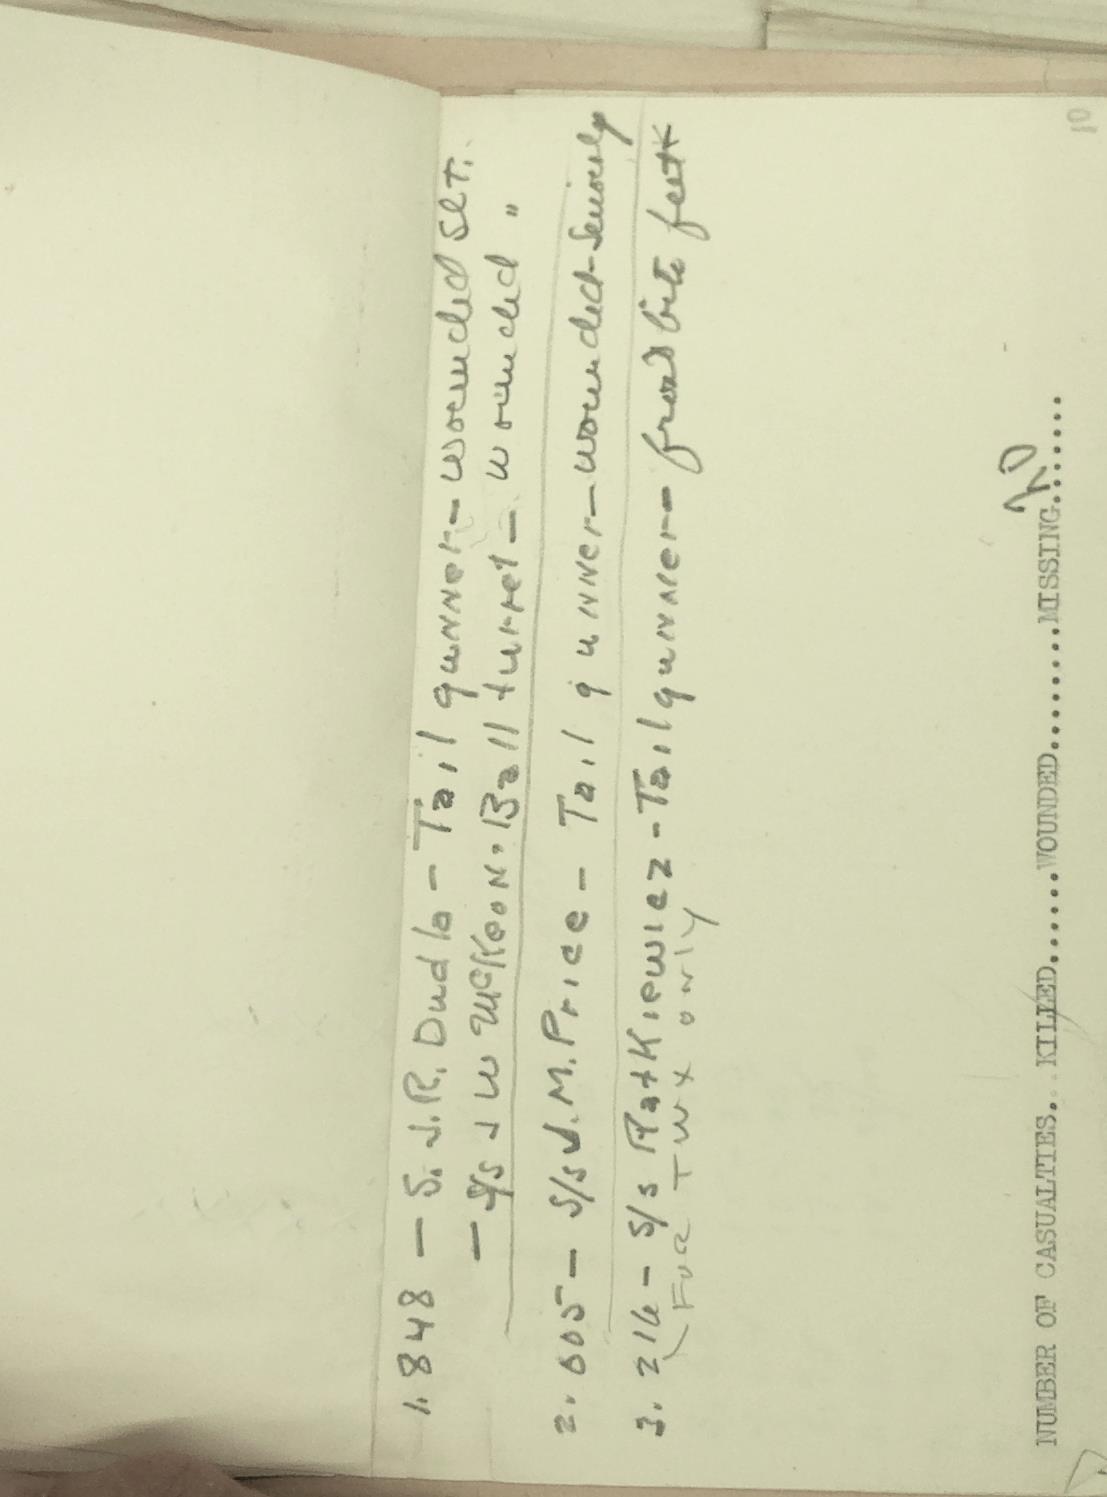 1. 848 — S. J.R. Dudla - Tail gunner - wounded SLT.
— S/S J W McKeon. Ball turret — wounded "
2. 605 — S/S J. M. Price — Tail gunner — wounded - seriously
3. 216 - S/S RatKiewicz - Tail gunner - frost bite feet
(FOR TWX ONLY
NUMBER OF CASUALTIES. KILLED......WOUNDED.........MISSING.......
10